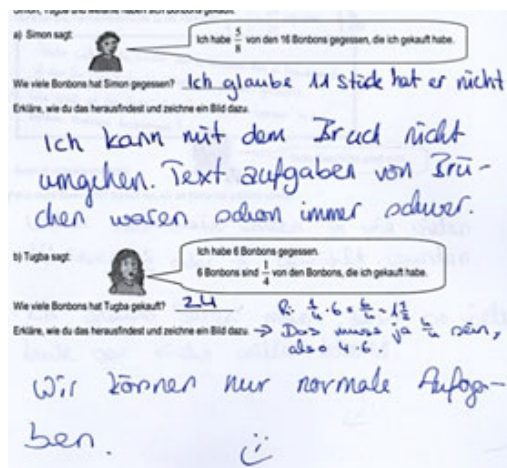 Simon, Tugba und Melanie haben sich Bonbons gekauft.
a) Simon sagt:
Ich habe 5/8 von den 16 Bonbons gegessen, die ich gekauft habe.
Wie viele Bonbons hat Simon gegessen? Ich glaube 11 Stück hat er nicht
Erkläre, wie du das herausfindest und zeichne ein Bild dazu.
Ich kann mit dem Bruch nicht
umgehen. Text aufgaben von Brü-
chen waren schon immer schwer.
b) Tugba sagt:
Ich habe 6 Bonbons gegessen.
6 Bonbons sind 1/4 von den Bonbons, die ich gekauft habe.
Wie viele Bonbons hat Tugba gekauft? 24
R: 1/4 · 6 = 6/4 = 1 1/2
Erkläre, wie du das herausfindest und zeichne ein Bild dazu. → Das muss ja 4/4 sein,
also 4·6
Wir können nur normale Aufga-
ben.